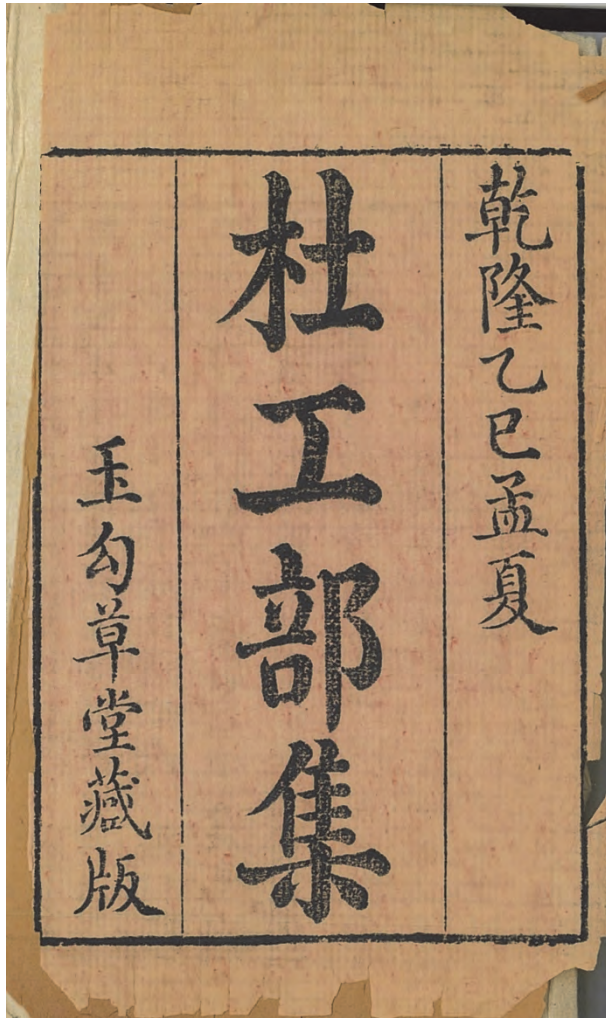 乾隆乙巳孟夏
杜工部集
玉勾草堂藏版